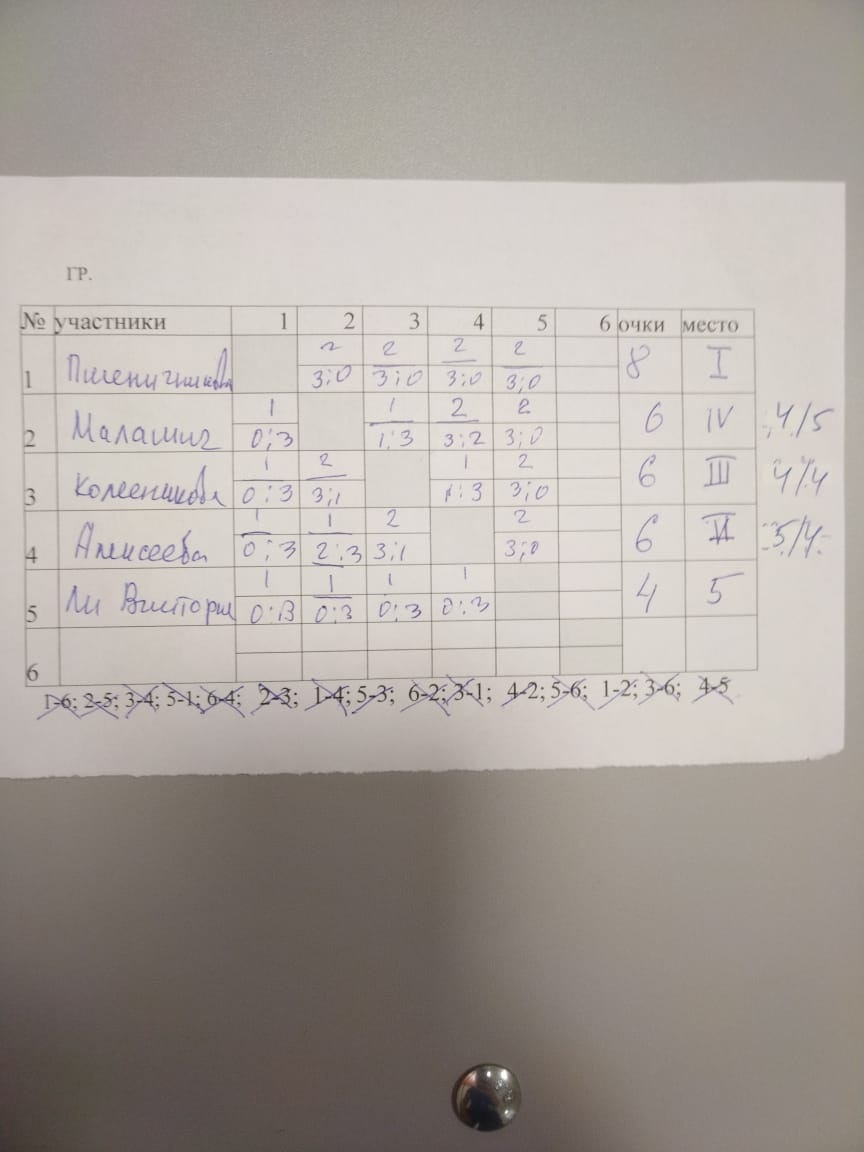 ГР.
№ участники 1 2 3 4 5 6 очки место
1 Пшеничникова 2 2 2 2 8 I
3:0 3:0 3:0 3:0
2 Малашич 1 1 2 2 6 IV 4/5
0:3 1:3 3:2 3:0
3 Колесникова 1 2 1 2 6 III 4/4
0:3 3:1 1:3 3:0
4 Алексеева 1 1 2 2 6 5/4
0:3 2:3 3:1 3:0
5 Ли Виктория 1 1 1 1 4 5
0:3 0:3 0:3 0:3
6
1-6; 2-5; 3-4; 5-1; 6-4; 2-3; 1-4; 5-3; 6-2; 3-1; 4-2; 5-6; 1-2; 3-6; 4-5